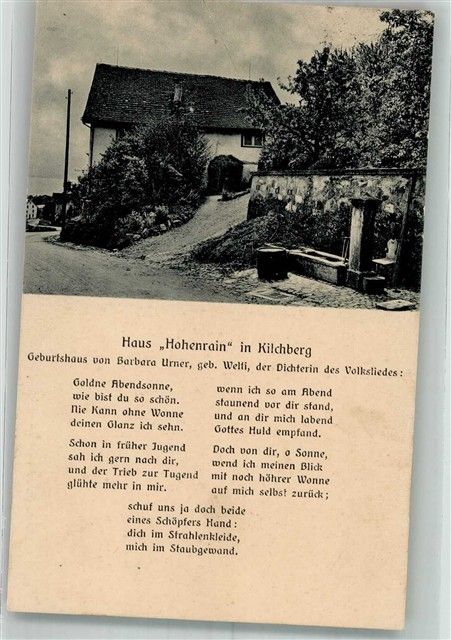 Haus „Hohenrain" in Kilchberg
Geburtshaus von Barbara Urner, geb. Welti, der Dichterin des Volksliedes:
Goldne Abendsonne,
wie bist du so schön.
Nie Kann ohne Wonne
deinen Glanz ich sehn.
Schon in früher Jugend
sah ich gern nach dir,
und der Trieb zur Tugend
glühte mehr in mir.
wenn ich so am Abend
staunend vor dir stand,
und an dir mich labend
Gottes Huld empfand.
Doch von dir, o Sonne,
wend ich meinen Blick
mit noch höhrer Wonne
auf mich selbst zurück;
schuf uns ja doch beide
eines Schöpfers Hand:
dich im Strahlenkleide,
mich im Staubgewand.